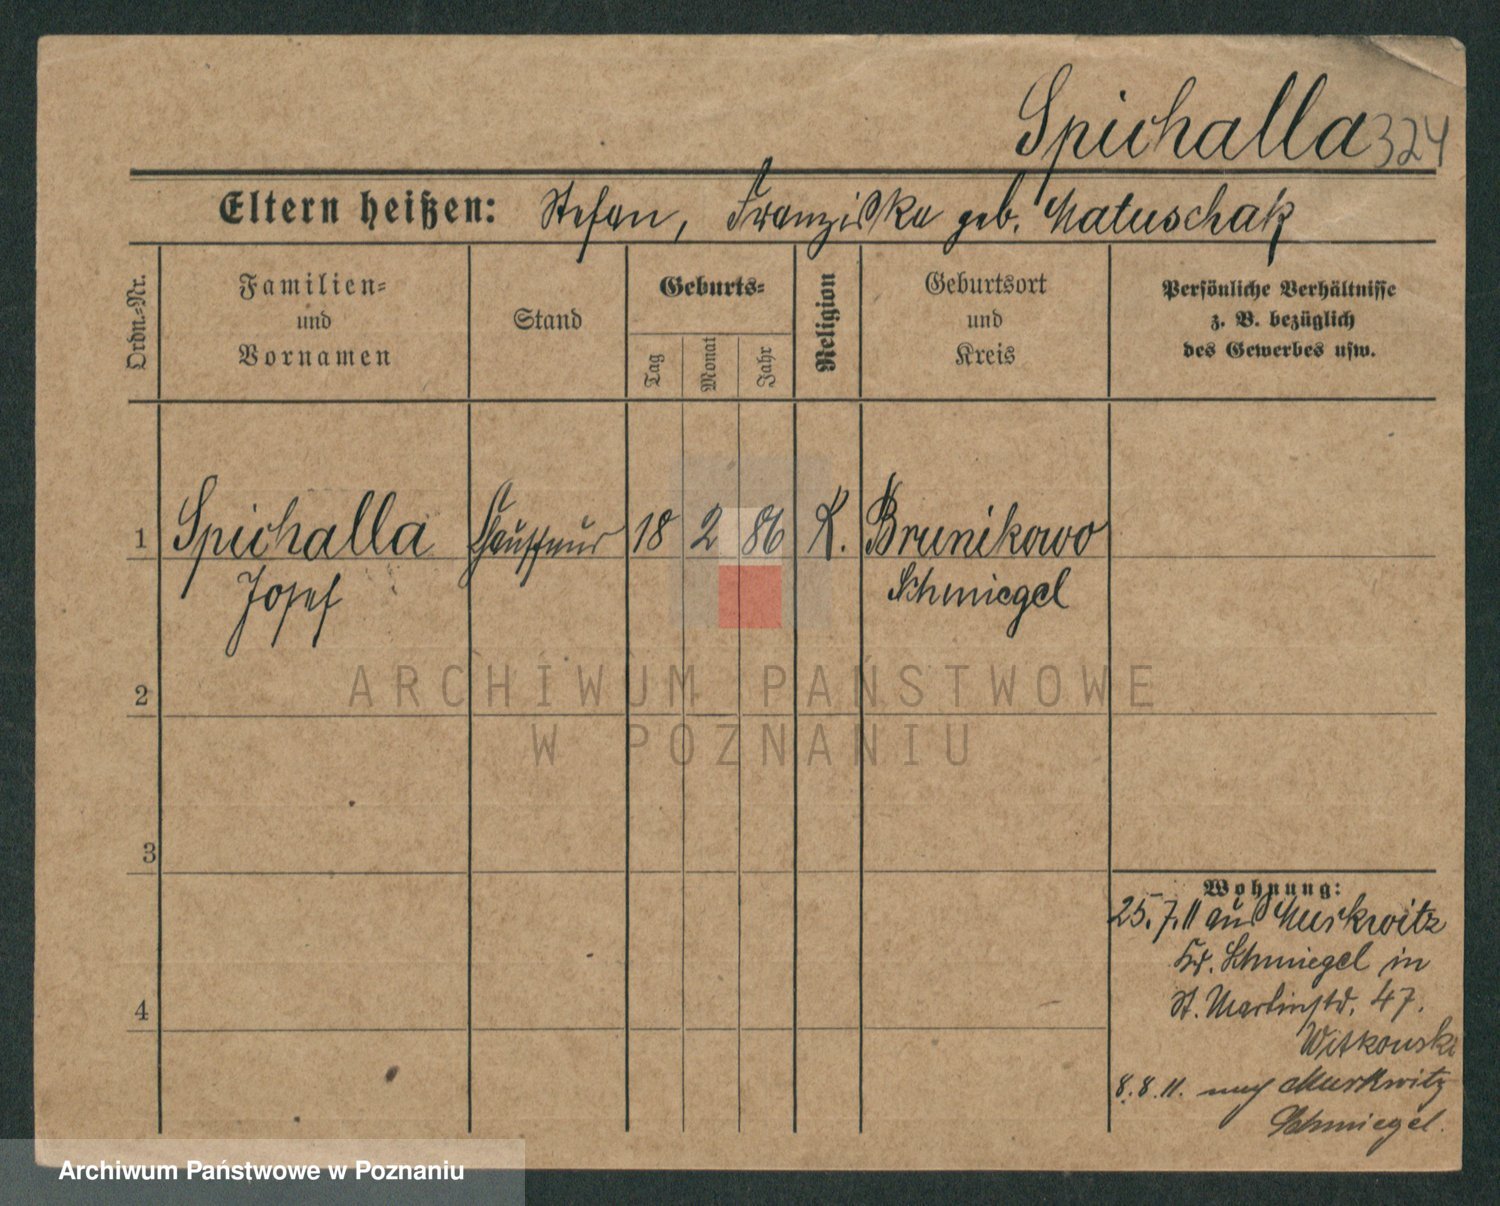 Spichalla 324
Eltern heißen: Stefan, Franziska geb. Matuschak
Ordn.-Nr.
Familien-
und
Vornamen
Stand
Geburts-
Tag
Monat
Jahr
Religion
Geburtsort
und
Kreis
Persönliche Verhältnisse
z. B. bezüglich
des Gewerbes usw.
1 Spichalla Chauffeur 18 2 86 K. Brunikowo
Josef Schmiegel
2
ARCHIWUM PAŃSTWOWE
W POZNANIU
3
Wohnung:
25.7.11 aus Murkwitz
Kr. Schmiegel in
St. Martinstr. 47.
Witkowski
4
8.8.11. nach Murkwitz
Schmiegel.
Archiwum Państwowe w Poznaniu